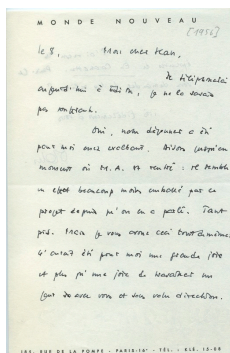 MONDE NOUVEAU
[1956]
le 8, Mon cher Jean,
Je téléphonerai
aujourd'hui à Édith, je ne la savais
pas souffrante.
Oui, notre déjeuner a été
pour moi aussi excellent. Disons jusqu'au
moment où M. A. est rentré : il semble
en effet beaucoup moins emballé par ce
projet depuis qu'on en a parlé. Tant
pis. Mais je vous avoue ceci tout de même :
ç'aurait été pour moi une grande joie
et plus qu'une joie de travailler un
jour avec vous et sous votre direction.
185, RUE DE LA POMPE - PARIS-16e - TÉL. - KLÉ. 15-08